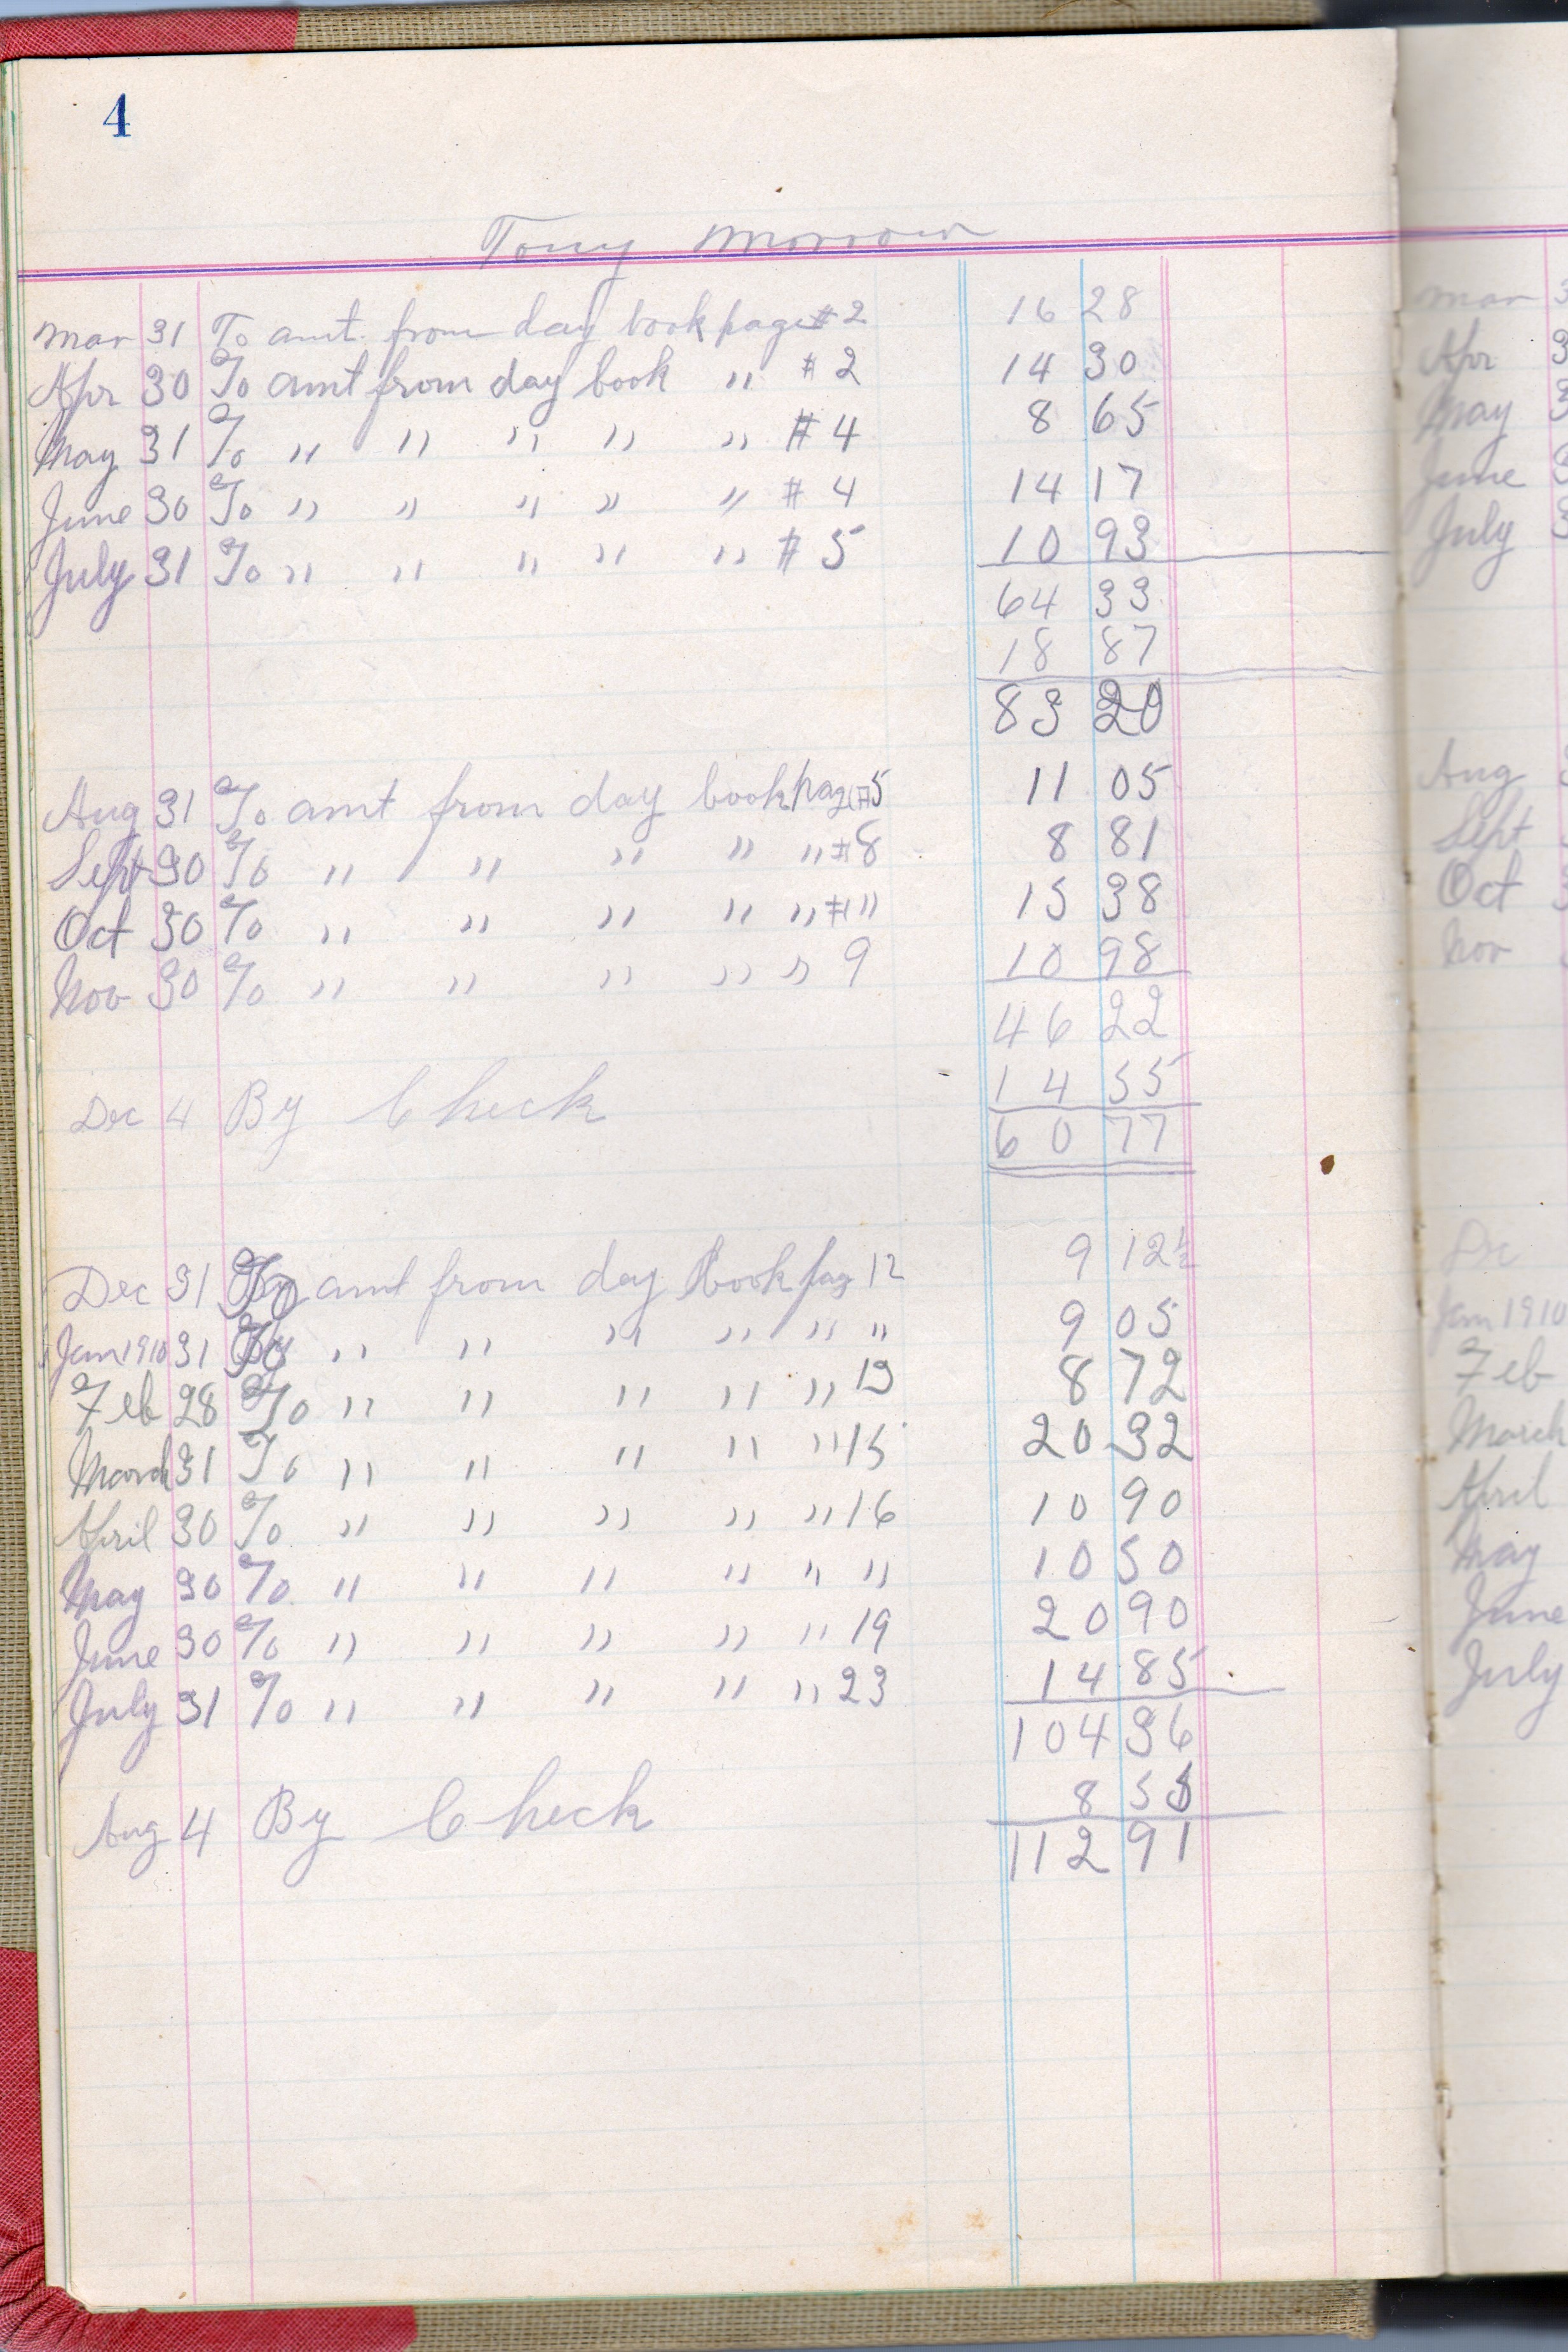 4
Tony Morrow
Mar 31 To amt. from day book page #2 16 28
Apr 30 To amt from day book " #2 14 30
May 31 To " " " " " #4 8 65
June 30 To " " " " " #4 14 17
July 31 To " " " " " #5 10 93
64 33
18 87
83 20
Aug 31 To amt from day book page #5 11 05
Sept 30 To " " " " " #8 8 81
Oct 30 To " " " " " #11 15 38
Nov 30 To " " " " " 9 10 98
46 22
14 55
Dec 4 By Check 60 77
Dec 31 To amt from day book pag 12 9 12½
Jan 1910 31 To " " " " " " 9 05
Feb 28 To " " " " " 13 8 72
March 31 To " " " " " 15 20 32
April 30 To " " " " " 16 10 90
May 30 To " " " " " " 10 50
June 30 To " " " " " 19 20 90
July 31 To " " " " " 23 14 85
104 36
8 55
Aug 4 By Check 112 91
Mar 3
Apr 3
May 3
June 3
July 3
Aug
Sept
Oct
Nov
Dec
Jan 1910
Feb
March
April
May
June
July